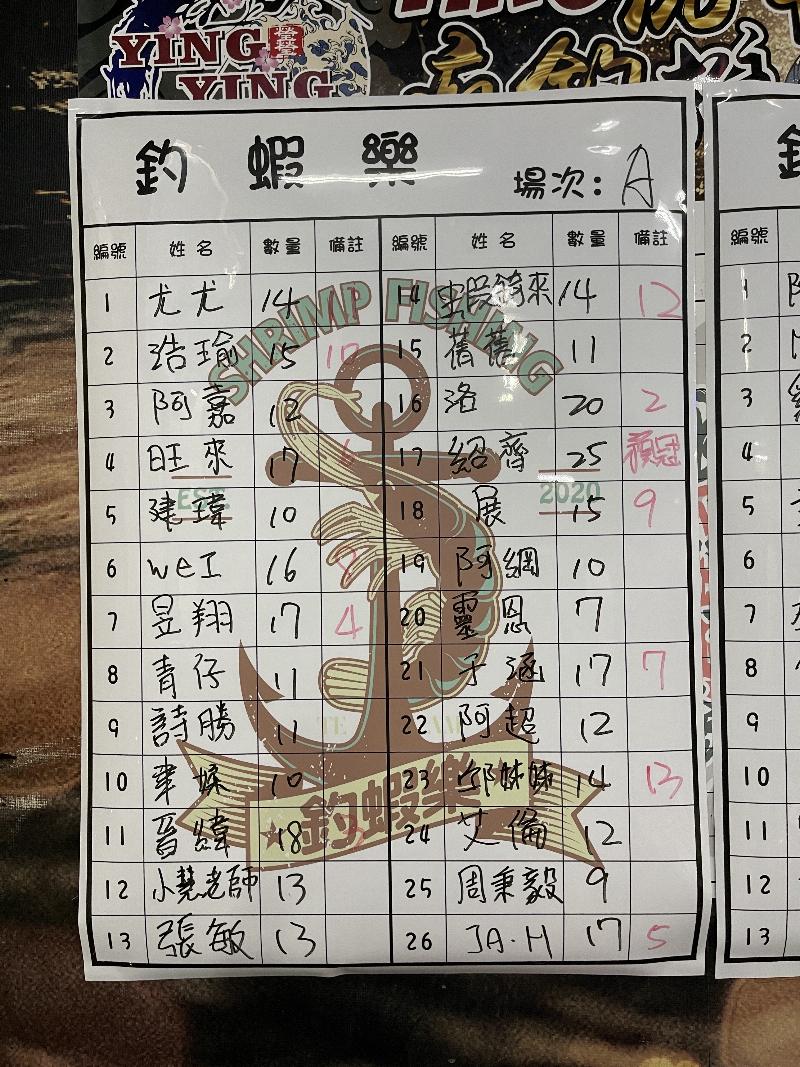 YING
YING
釣 蝦 樂
場次: A
編號 姓名 數量 備註 編號 姓名 數量 備註
1 尤尤 14 14 蝦蝦錡來 14 12
2 浩瑜 15 10 15 舊舊 11
3 阿嘉 12 16 洛 20 2
4 旺來 17 6 17 紹齊 25 預冠
5 建瑋 10 18 展 15 9
6 WeI 16 19 阿綱 10
7 昱翔 17 4 20 靈恩 7
8 青仔 11 21 于涵 17 7
9 詩勝 11 22 阿超 12
10 10 23 邱妹妹 14 13
11 晉緯 18 3 24 艾倫 12
12 小慧老師 13 25 周秉毅 9
13 張敏 13 26 JA.H 17 5
SHRIMP FISHING
EST. 2020
釣蝦樂
編號
1
2
3
4
5
6
7
8
9
10
11
12
13